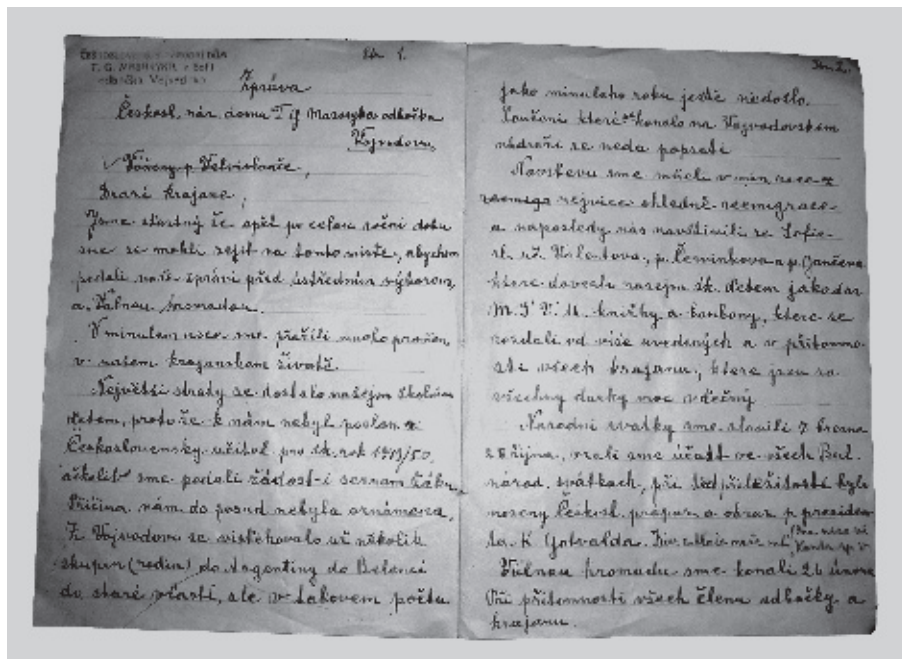 ČESKOSLOVENSKÝ NÁRODNÍ DŮM
T. G. MASARYKA v Sofii
odbočka Vojvodovo
Str 1.
Zpráva
Českosl. nár. domu T G Masaryka odbočka
Vojvodovo
Drazí krajané,
Jsme stastný že opět po celou roční dobu
sme se mohli sejít na tomto místě, abychom
podali naše zprávi před ústředním výborem
a. Valnou hromadou.
V minulem roce sme prožili mnoho proměn
v našem krajanskem životě.
Největší straty se dostalo našejm školním
dětem, protože k nám nebyl poslan
Československy učitel pro šk. rok 1949/50,
ačkolif sme podali žádost i seznam žáku.
Příčina nám do posud nebyla oznámena.
Z Vojvodova se vistěhovalo už několik
skupin (rodin) do Argentiny do Belencí
do staré vlasti, ale v takovem počtu
Str 2.
jako minuleho roku ještě nedošlo.
Loučeni ktere se konalo na Vojvodovskem
nádraží se neda popsati
Navštevu sme měli v roce
nejvice ohledně reemigrace
a naposledy nás navštivili ze Sofie
p. Čeminkova a p. Jančena
ktere dovezli našejm šk. dětem jako dar
M. Š. V. U. knížky a bonbony, ktere se
rozdali od više uvedených a v přitomno-
sti všech krajanu, ktere jsou za
všechny darky moc vděčný
Narodni svatky sme slavili 7 března
28 října, vzali sme účast ve všech Bul.
národ. svátkach, při příležitosti byla
noseny Českosl. prapor a obraz p. presiden-
ta K Gotvalda.
Valnou hromadu sme konali 26 února
Při přitomnosti všech členu odbočky a
krajanu.